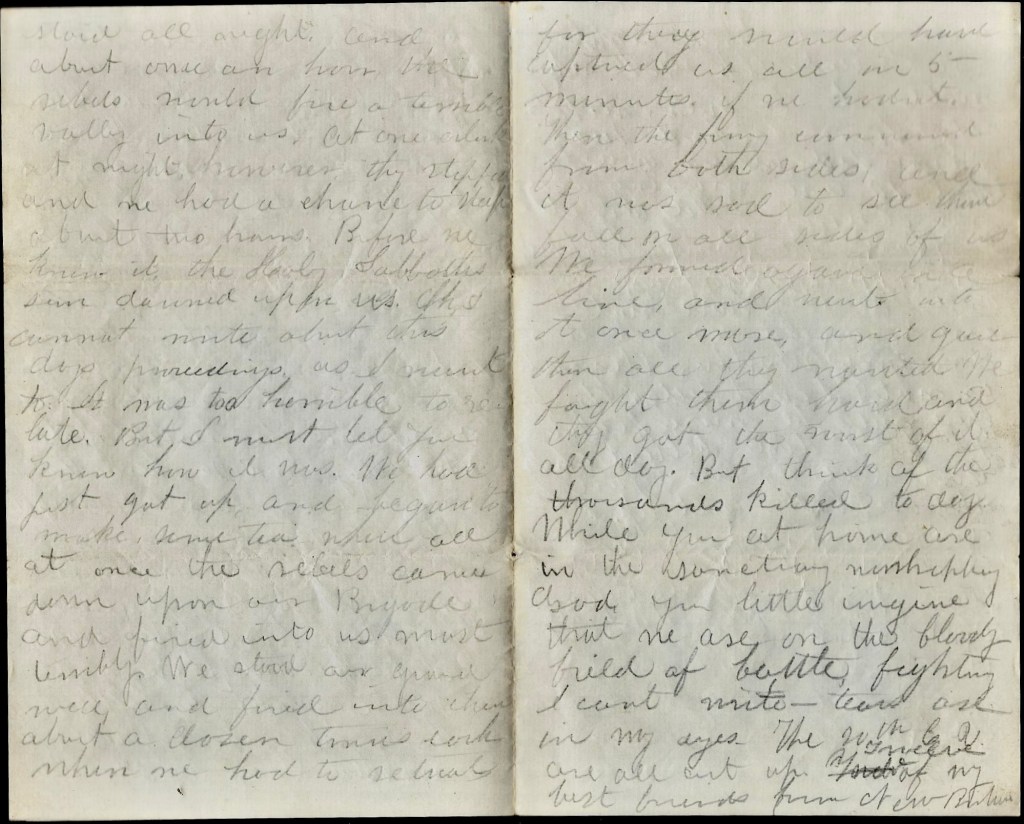 stood all night. and
about once an hour the
rebels would fire a terrible
volley into us. At one oclock
at night however they stopped
and we had a chance to sleep
about two hours. Before we
knew it the Holy Sabbaths
sun dawned upon us. Oh I
cannot write about this
days proceedings as I want
to. It was too horrible to re
late. But I must let you
know how it was. We had
just got up and began to
make some tea when all
at once the rebels came
down upon our Brigade
and fired into us most
terribly. We stood our ground
well and fired into them
about a dozen times each
when we had to retreat
for they would have
captured us all in 5
minutes if we hadn't.
Then the firing commenced
from both sides, and
it was sad to see them
fall on all sides of us
We formed again in
line, and went into
it once more, and gave
them all they wanted. We
fought them hard and
they got the worst of it
all day. But think of the
thousands killed to day
While you at home are
in the sanctuary worshipping
God, you little imgine
that we are on the bloody
field of battle, fighting
I cant write – tears are
in my eyes. The
are all cut up. Twelve of my
best friends from New Britain